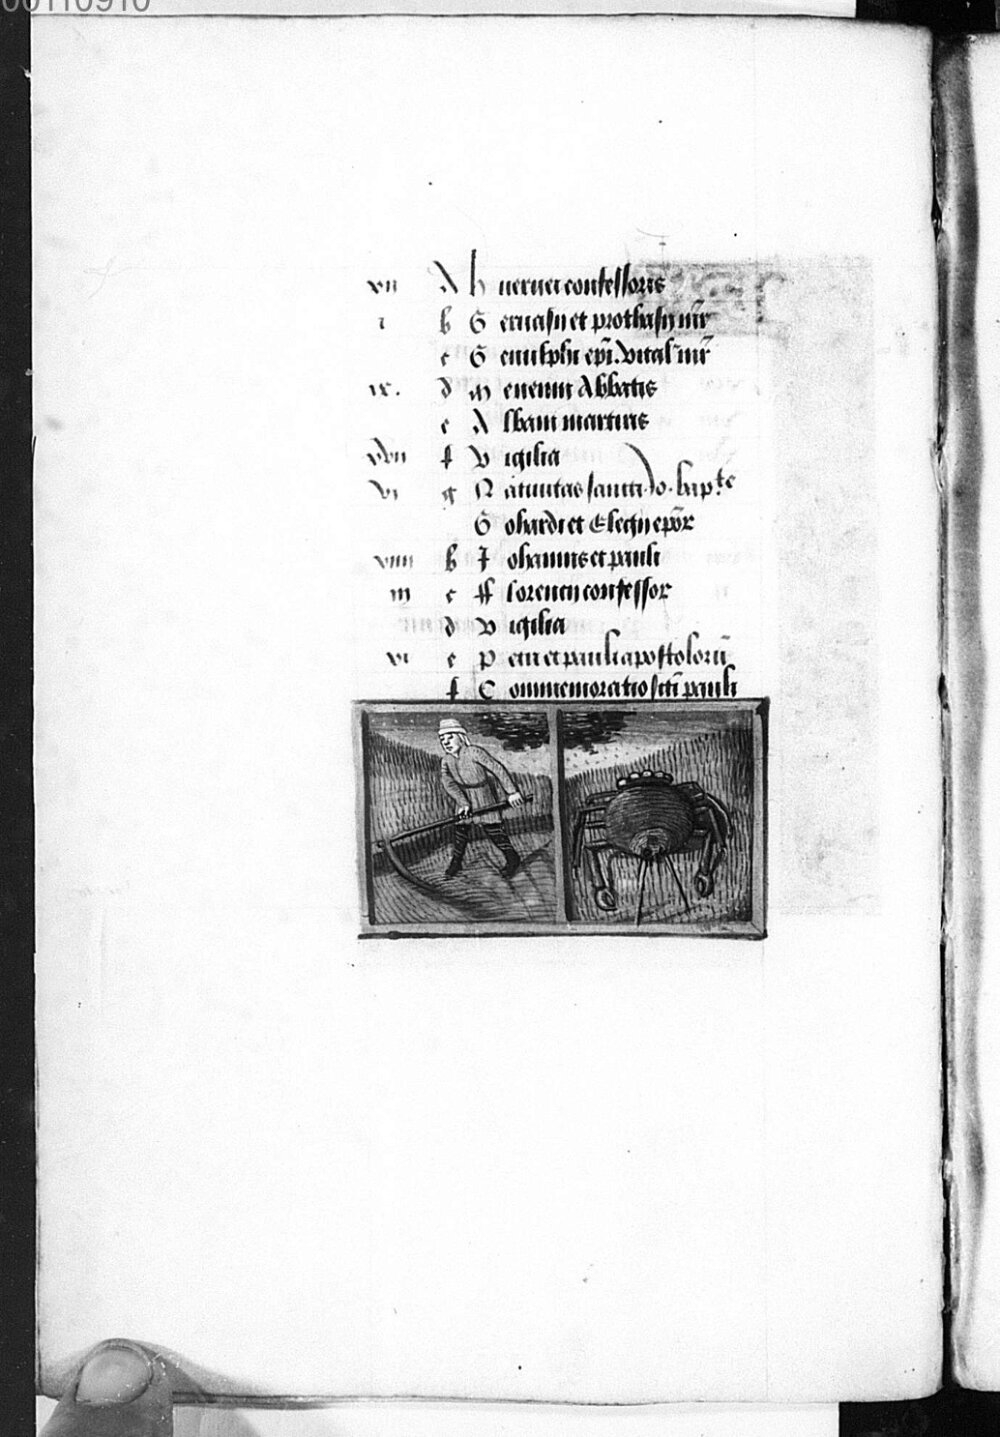 00110910
xvii A Huervei confessoris
i b Geruasii et prothasii mr̄
c Genulphi epī. vitał mr̄
ix. d Meuenni Abbatis
e Albani martiris
xvii f Vigilia
vi g Natiuitas sancti io. bap.te
Gohardi et Elegii epōr
xiiii b Iohannis et pauli
iii c fflorencii confessor
d Vigilia
vi e Petri et pauli apostolorū
f Commemoratio scti pauli